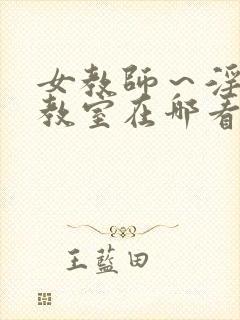 女教師～淫
教室在哪看
王藍田